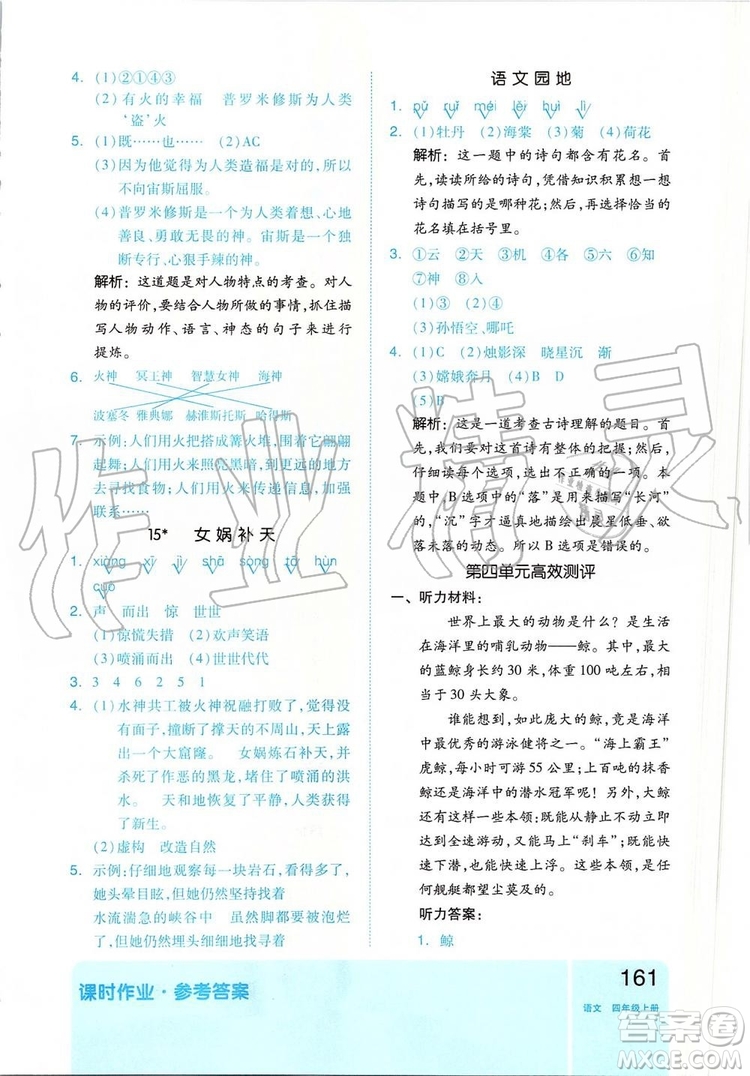 4. (1)②①④③
(2)有火的幸福 普罗米修斯为人类
‘盗’火
5. (1)既……也…… (2)AC
(3)因为他觉得为人类造福是对的,所以
不向宙斯屈服。
(4)普罗米修斯是一个为人类着想、心地
善良、勇敢无畏的神。宙斯是一个独
断专行、心狠手辣的神。
解析:这道题是对人物特点的考查。对人
物的评价,要结合人物所做的事情,抓住描
写人物动作、语言、神态的句子来进行
提炼。
6. 火神 冥王神 智慧女神 海神
波塞冬 雅典娜 赫淮斯托斯 哈得斯
7. 示例:人们用火把搭成篝火堆,围着它翩翩
起舞;人们用火来照亮黑暗,到更远的地方
去寻找食物;人们用火传递信息,加强
联系……
15* 女娲补天
1. xiáng xī jì shā sòng tā hùn
cuò
2. 声 而出 惊 世世
(1)惊慌失措 (2)欢声笑语
(3)喷涌而出 (4)世世代代
3. 3 4 6 2 5 1
4. (1)水神共工被火神祝融打败了,觉得没
有面子,撞断了撑天的不周山,天上露
出一个大窟窿。 女娲炼石补天,并
杀死了作恶的黑龙,堵住了喷涌的洪
水。 天和地恢复了平静,人类获得
了新生。
(2)虚构 改造自然
5. 示例:仔细地观察每一块岩石,看得多了,
她头晕目眩,但她仍然坚持着
水流湍急的峡谷中 虽然脚都被泡烂
了,但她仍然埋头仔细地寻找着
语文园地
1. pǔ ruǐ méi lěi huì lì
2. (1)牡丹 (2)海棠 (3)菊 (4)荷花
解析:这一题中的诗句都含有花名。首
先,读读所给的诗句,凭借知识积累想一想
诗句描写的是哪种花;然后,再选择合适的
花名填在括号里。
3. ①云 ②天 ③机 ④各 ⑤六 ⑥知
⑦神 ⑧入
(1)③ (2)④
(3)孙悟空、哪吒
4. (1)C (2)烛影深 晓星沉 渐
(3)嫦娥奔月 (4)B
(5)B
解析:这是一道考查古诗理解的题目。首
先,要对这首诗有整体的把握;然后,
仔细阅读每个选项,逐一判断正误。本
题中,B选项中的“落”是用来描写“长河”
的,“沉”字才逼真地描绘出晨星低垂、欲
落未落的动态。因此B选项是错误的。
第四单元高效测评
一、听力材料:
世界上最大的动物是什么?是生活
在海洋里的哺乳动物——鲸。其中,最大
的蓝鲸身长约30米,体重约100吨,相当
于30头大象。
谁能想到,如此庞大的鲸,竟是海洋
中最优秀的游泳健将之一。“海上霸王”
虎鲸,每小时可游55公里;出名的抹香鲸
还是海洋中的潜水冠军呢!不仅如此,大鲸
有惊人的加速度,既能从静止不动立即到
达全速游动,又能马上“刹车”;既能快速
下潜,也能快速上升。这些高超技能,是任
何舰艇都望尘莫及的。
听力答案:
1. 鲸
课时作业·参考答案
161
语文 四年级上册
作业精灵
答案圈
MXQE.COM